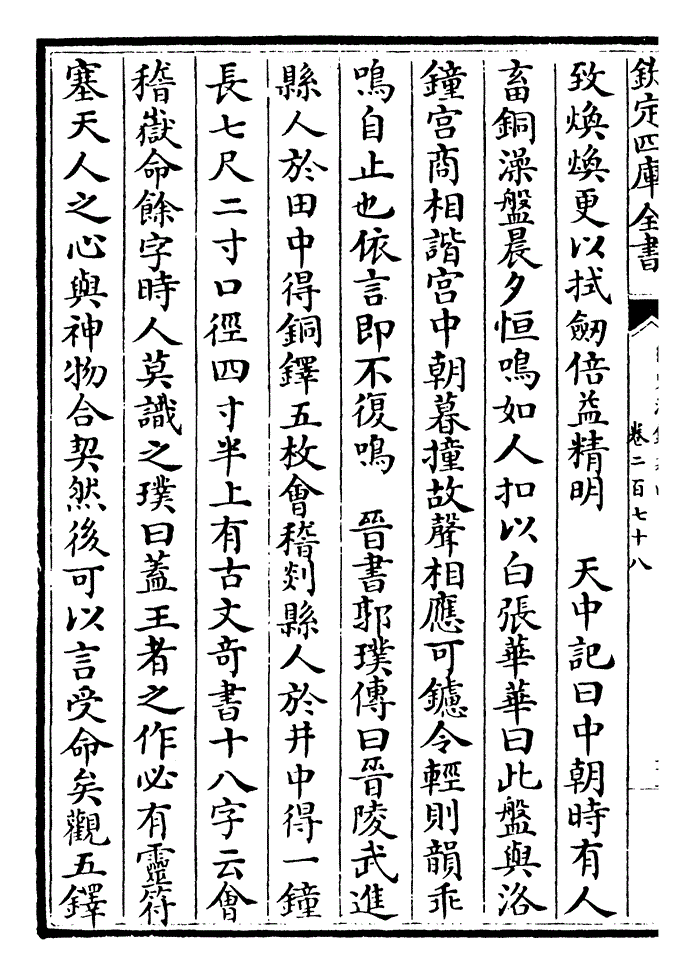 欽定四庫全書
卷二百七十八
致煥煥更以拭劒倍益精明　天中記曰中朝時有人
畜銅澡盤晨夕恒鳴如人扣以白張華華曰此盤與洛
鐘宮商相諧宮中朝暮撞故聲相應可鑢令輕則韻乖
鳴自止也依言即不復鳴　晉書郭璞傳曰晉陵武進
縣人於田中得銅鐸五枚會稽剡縣人於井中得一鐘
長七尺二寸口徑四寸半上有古文奇書十八字云會
稽嶽命餘字時人莫識之璞曰蓋王者之作必有靈符
塞天人之心與神物合契然後可以言受命矣觀五鐸